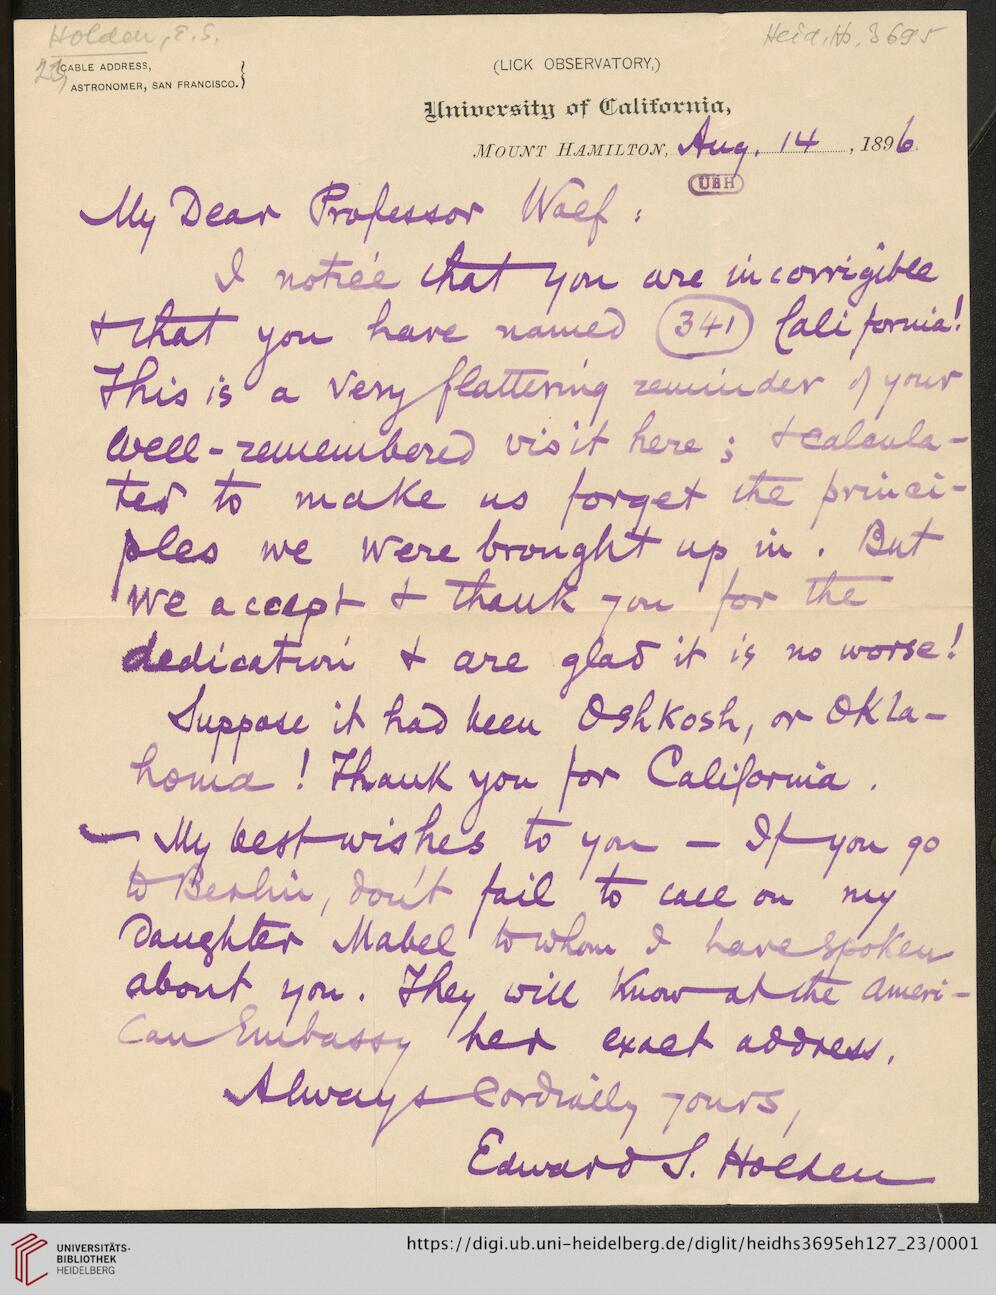 Holden, E. S.
Heid. Hs. 3695
23
CABLE ADDRESS,
ASTRONOMER, SAN FRANCISCO.
(LICK OBSERVATORY,)
University of California,
MOUNT HAMILTON, Aug. 14, 1896.
UBH
My Dear Professor Wolf:
I notice that you are incorrigible
& that you have named (341) California!
This is a very flattering reminder of your
well-remembered visit here; & calcula-
ted to make us forget the princi-
ples we were brought up in. But
we accept & thank you for the
dedication & are glad it is no worse!
Suppose it had been Oshkosh, or Okla-
homa! Thank you for California.
— My best wishes to you — If you go
to Berlin, don't fail to call on my
Daughter Mabel to whom I have spoken
about you. They will know at the Ameri-
can Embassy her exact address.
Always cordially yours,
Edward S. Holden
UNIVERSITÄTS-
BIBLIOTHEK
HEIDELBERG
https://digi.ub.uni-heidelberg.de/diglit/heidhs3695eh127_23/0001